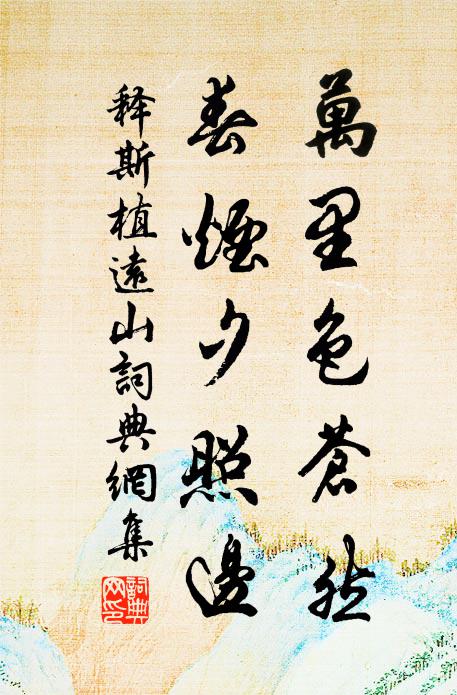 萬里色蒼然
春煙夕照邊
释斯植遠山詞典網集
詞典网印